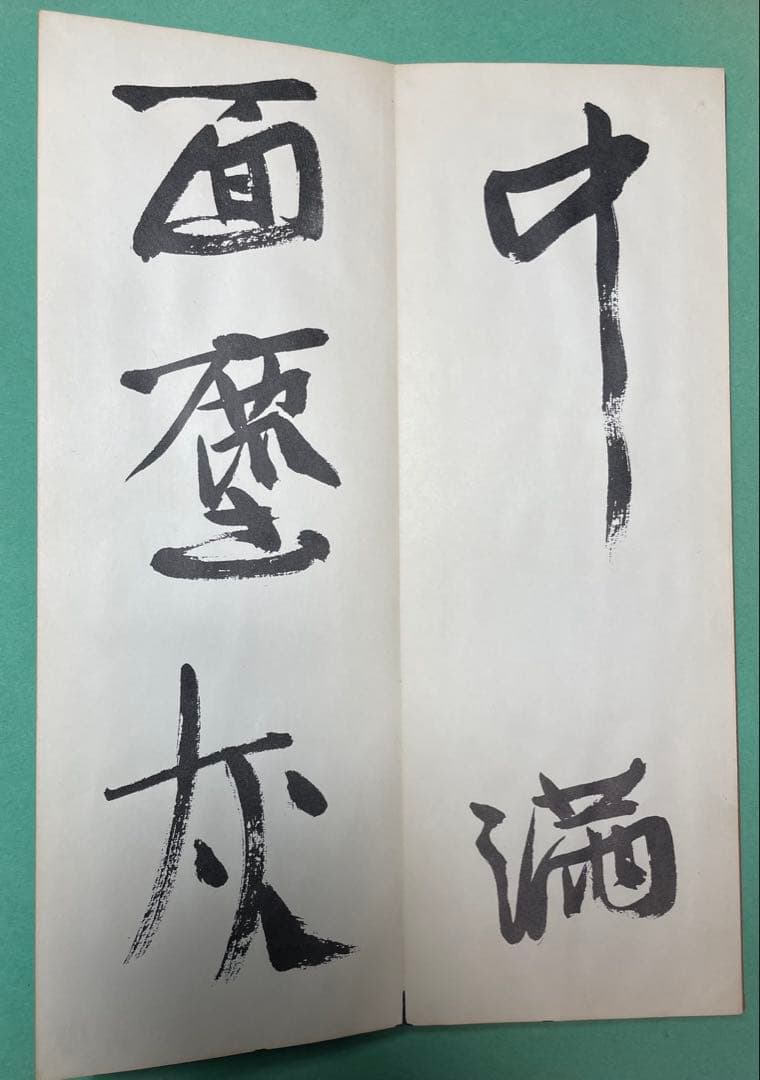 中滿
面塵灰